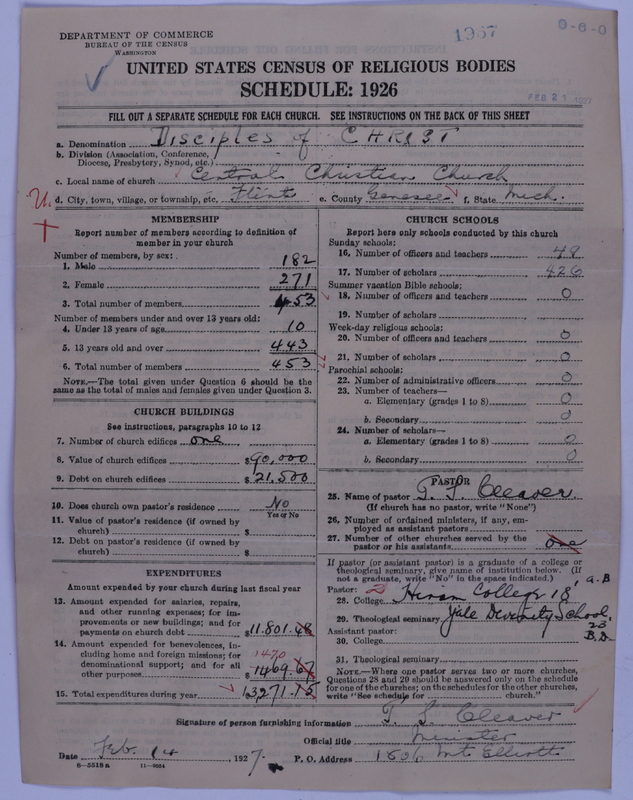 DEPARTMENT OF COMMERCE
BUREAU OF THE CENSUS
WASHINGTON
1957
0-6-0
UNITED STATES CENSUS OF RELIGIOUS BODIES
SCHEDULE: 1926
FEB 21 1927
FILL OUT A SEPARATE SCHEDULE FOR EACH CHURCH. SEE INSTRUCTIONS ON THE BACK OF THIS SHEET
a. Denomination Disciples of CHRIST
b. Division (Association, Conference, Diocese, Presbytery, Synod, etc.)
c. Local name of church Central Christian Church
d. City, town, village, or township, etc. Flint e. County Genesee f. State Mich.
MEMBERSHIP
Report number of members according to definition of member in your church
Number of members, by sex:
1. Male 182
2. Female 271
3. Total number of members 453
Number of members under and over 13 years old:
4. Under 13 years of age 10
5. 13 years old and over 443
6. Total number of members 453
NOTE.—The total given under Question 6 should be the same as the total of males and females given under Question 3.
CHURCH BUILDINGS
See instructions, paragraphs 10 to 12
7. Number of church edifices one
8. Value of church edifices $90,000
9. Debt on church edifices $21,500
10. Does church own pastor's residence No
Yes or No
11. Value of pastor's residence (if owned by church) $
12. Debt on pastor's residence (if owned by church) $
EXPENDITURES
Amount expended by your church during last fiscal year
13. Amount expended for salaries, repairs, and other running expenses; for improvements or new buildings; and for payments on church debt $11.801.48
14. Amount expended for benevolences, including home and foreign missions; for denominational support; and for all other purposes 1470 $1469.67
15. Total expenditures during year 13,271.15
CHURCH SCHOOLS
Report here only schools conducted by this church
Sunday schools:
16. Number of officers and teachers 49
17. Number of scholars 426
Summer vacation Bible schools:
18. Number of officers and teachers 0
19. Number of scholars
Week-day religious schools:
20. Number of officers and teachers 0
21. Number of scholars 0
Parochial schools:
22. Number of administrative officers 0
23. Number of teachers—
a. Elementary (grades 1 to 8) 0
b. Secondary 0
24. Number of scholars—
a. Elementary (grades 1 to 8) 0
b. Secondary 0
PASTOR
25. Name of pastor T. S. Cleaver
(If church has no pastor, write "None")
26. Number of ordained ministers, if any, employed as assistant pastors
27. Number of other churches served by the pastor or his assistants one
If pastor (or assistant pastor) is a graduate of a college or theological seminary, give name of institution below. (If not a graduate, write "No" in the space indicated.)
Pastor:
28. College Hiram College 18' A.B
29. Theological seminary Yale Devinity School 25 B.D.
Assistant pastor:
30. College
31. Theological seminary
NOTE.—Where one pastor serves two or more churches, Questions 28 and 29 should be answered only on the schedule for one of the churches; on the schedules for the other churches, write "See schedule for church."
Signature of person furnishing information T. S. Cleaver
Official title Minister
Date Feb. 14 1927. P. O. Address 1506 Mt Elliott
8-5518a 11-9554